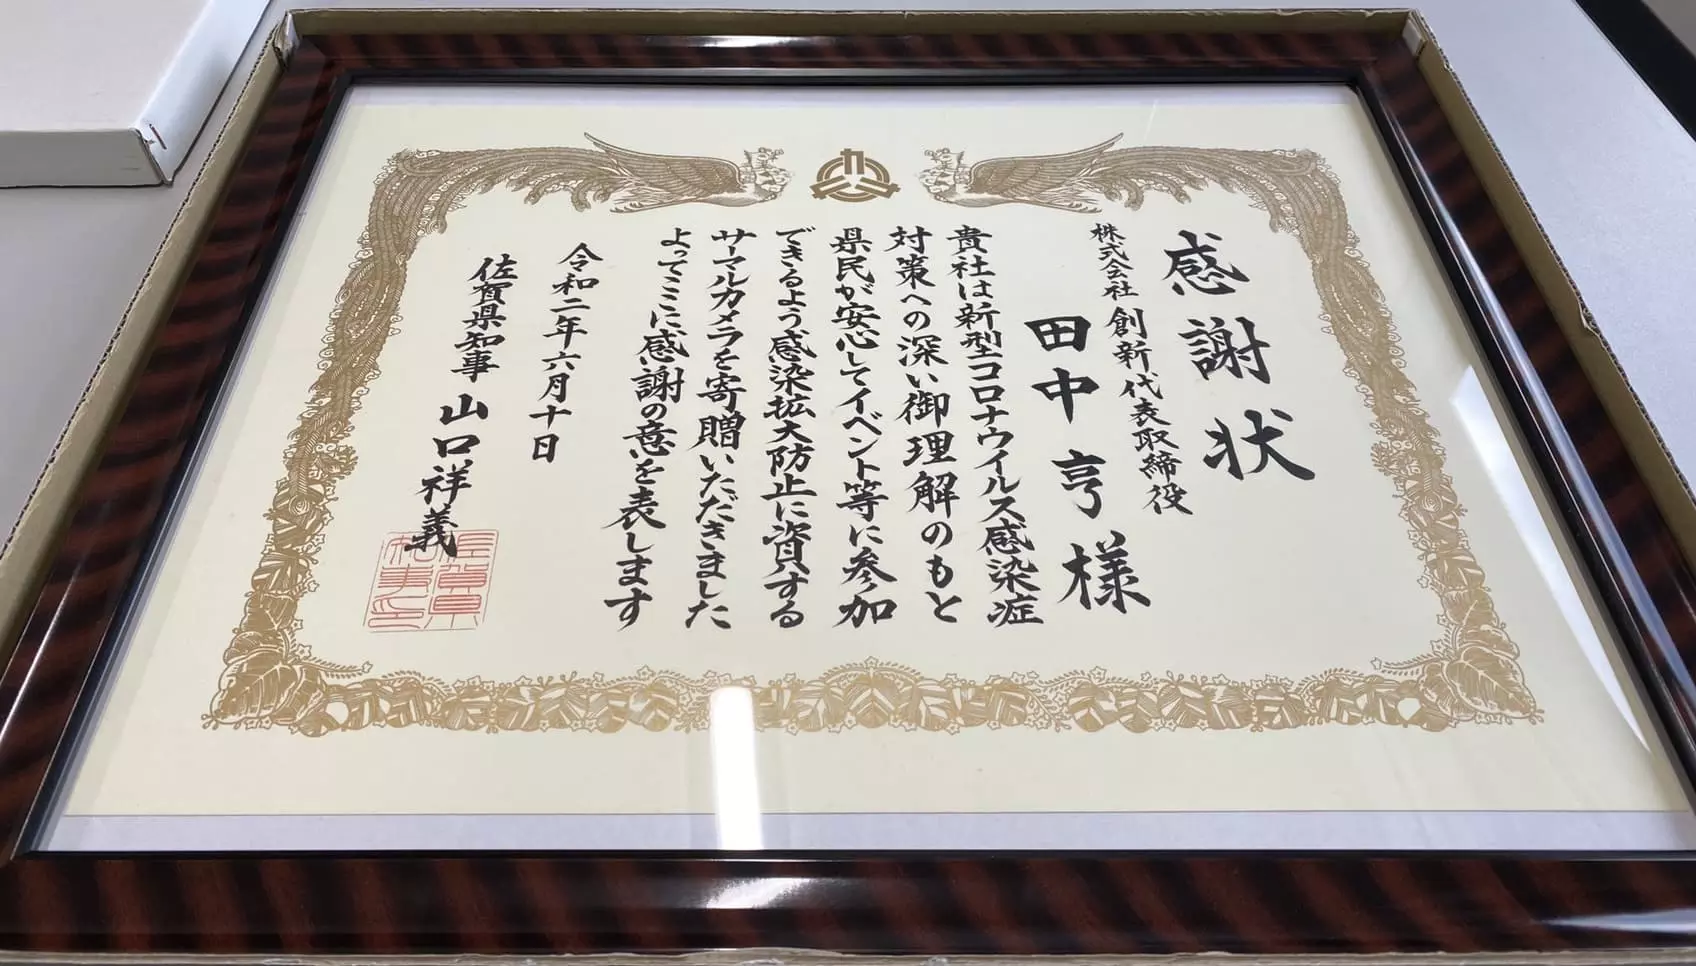 感謝状
株式会社 創新 代表取締役
田中 亨 様
貴社は新型コロナウイルス感染症
対策への深い御理解のもと
県民が安心してイベント等に参加
できるよう感染拡大防止に資する
サーマルカメラを寄贈いただきました
よってここに感謝の意を表します
令和二年六月十日
佐賀県知事 山口祥義
佐賀県
知事印